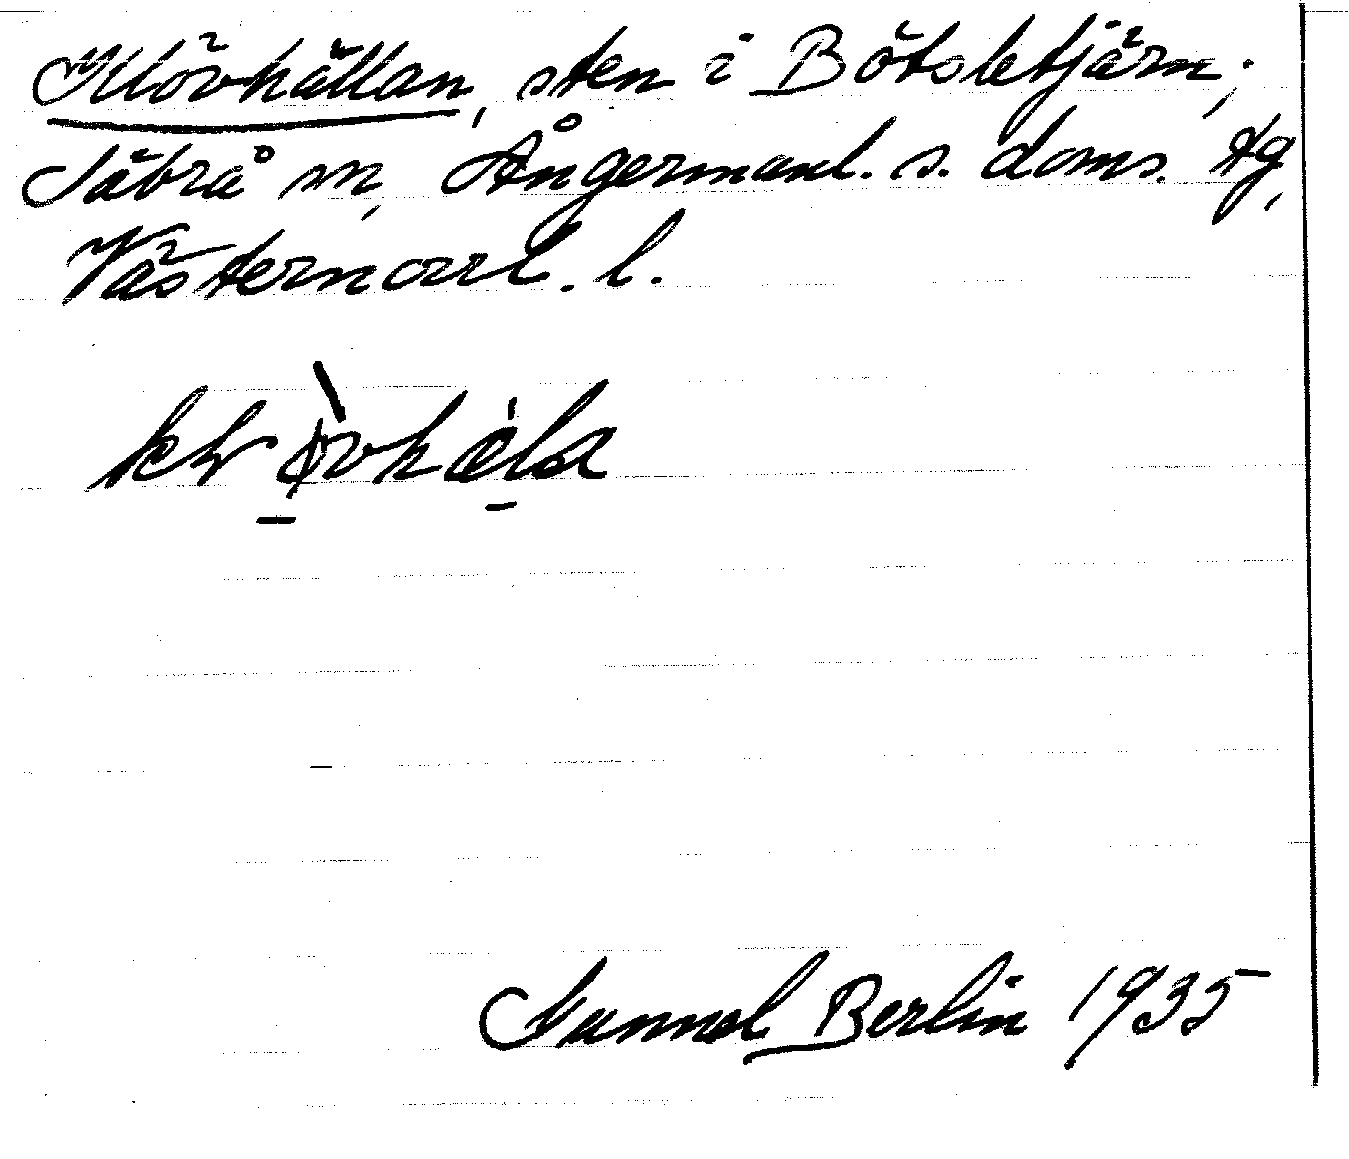 Klövhällan, sten i Bötsletjärn;
Säbrå sn, Ångermanl. s. doms. tg,
Västernorrl. l.
Nannel Berlin 1935